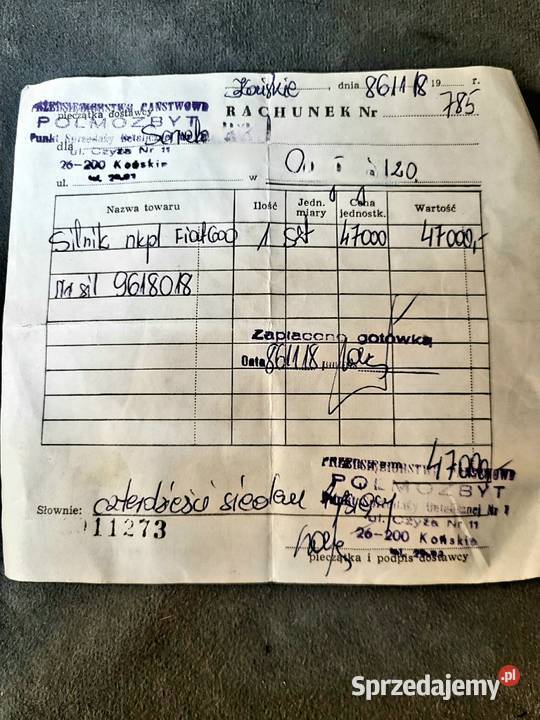 Końskie, dnia 861118 19 r.
PRZEDSIĘBIORSTWO PAŃSTWOWE
pieczątka dostawcy
RACHUNEK Nr 785
POLMOZBYT
Punkt Sprzedaży Detalicznej Nr
dla
ul. Czyża Nr 11
26-200 Końskie
ul. w 120
Nazwa towaru Ilość Jedn. miary Cena jednostk. Wartość
Silnik nkpl Fiat 600 1 szt 47000 47000,-
Nr sil 9618018
Zapłacono gotówką
Data 861118
47000,-
PRZEDSIĘBIORSTWO PAŃSTWOWE
POLMOZBYT
Punkt Sprzedaży Detalicznej Nr 1
Słownie: czterdzieści siedem
ul. Czyża Nr 11
011273
26-200 Końskie
pieczątka i podpis dostawcy
Sprzedajemy.pl